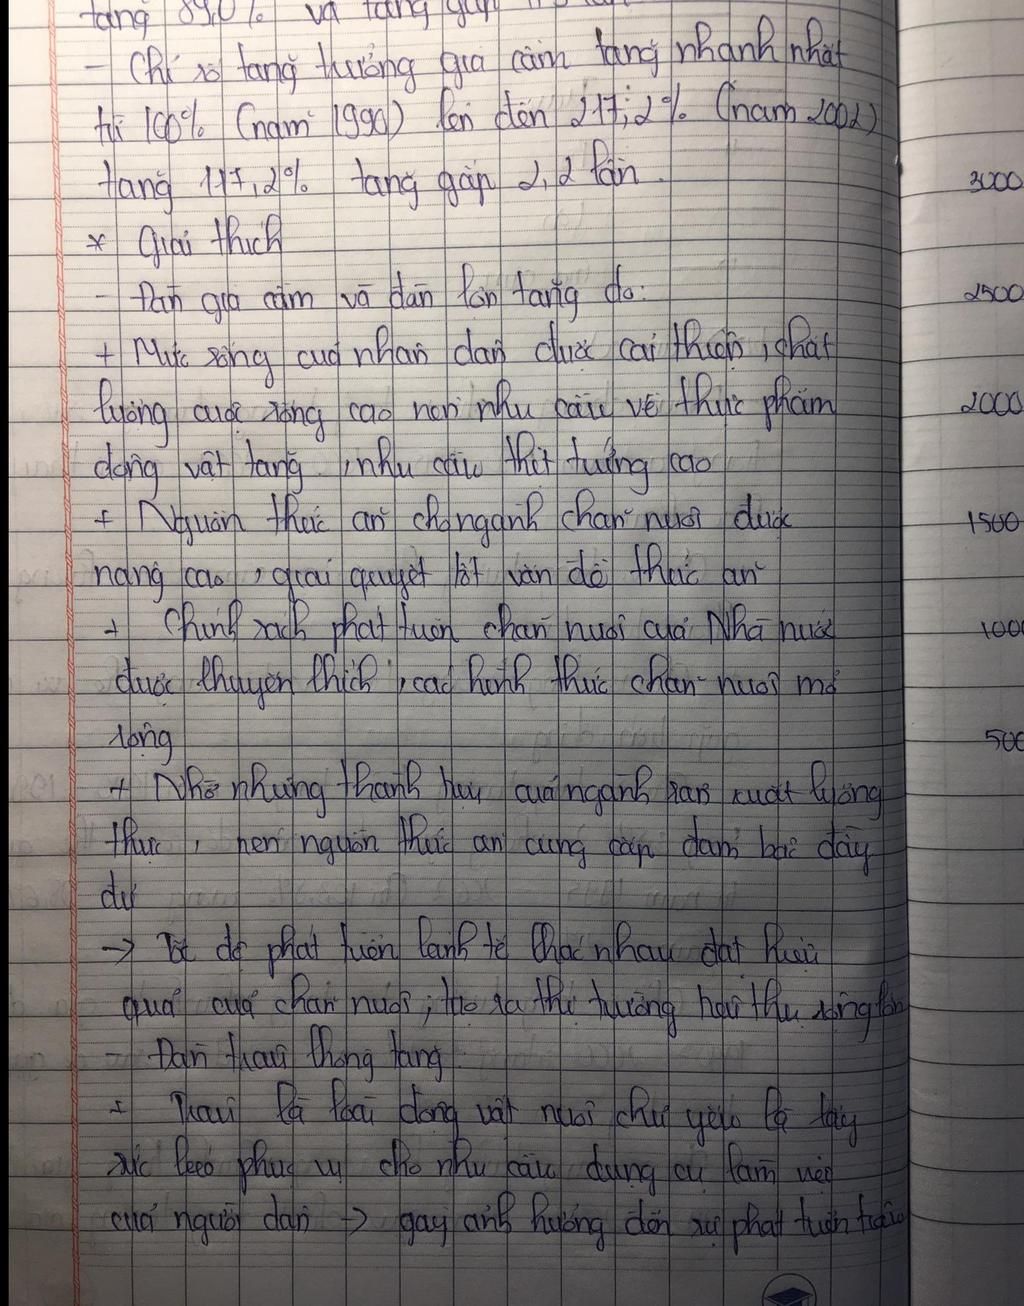 tăng 89,0% và tăng gấp
- Chỉ số tăng trưởng gia cầm tăng nhanh nhất
từ 100% (năm 1990) lên đến 217,2% (năm 2002)
tăng 117,2% tăng gấp 2,2 lần.
* Giải thích
- Đàn gia cầm và đàn lợn tăng do:
+ Mức sống của nhân dân được cải thiện, chất
lượng cuộc sống cao nên nhu cầu về thực phẩm
động vật tăng, nhu cầu thịt trứng cao
+ Nguồn thức ăn cho ngành chăn nuôi được
nâng cao, giải quyết tốt vấn đề thức ăn
+ Chính sách phát triển chăn nuôi của Nhà nước
được khuyến khích, các hình thức chăn nuôi mở
rộng
+ Nhờ những thành tựu của ngành sản xuất lương
thực, nên nguồn thức ăn cung cấp đảm bảo đầy
đủ
→ phát triển kinh tế khác nhau đạt hiệu
quả của chăn nuôi, tạo ra thị trường tiêu thụ rộng lớn
- Đàn trâu không tăng
+ Trâu là loài động vật nuôi chủ yếu là lấy
sức kéo phục vụ cho nhu cầu dụng cụ làm việc
của người dân → gây ảnh hưởng đến sự phát triển trâu
3000
2500
2000
1500
1000
500